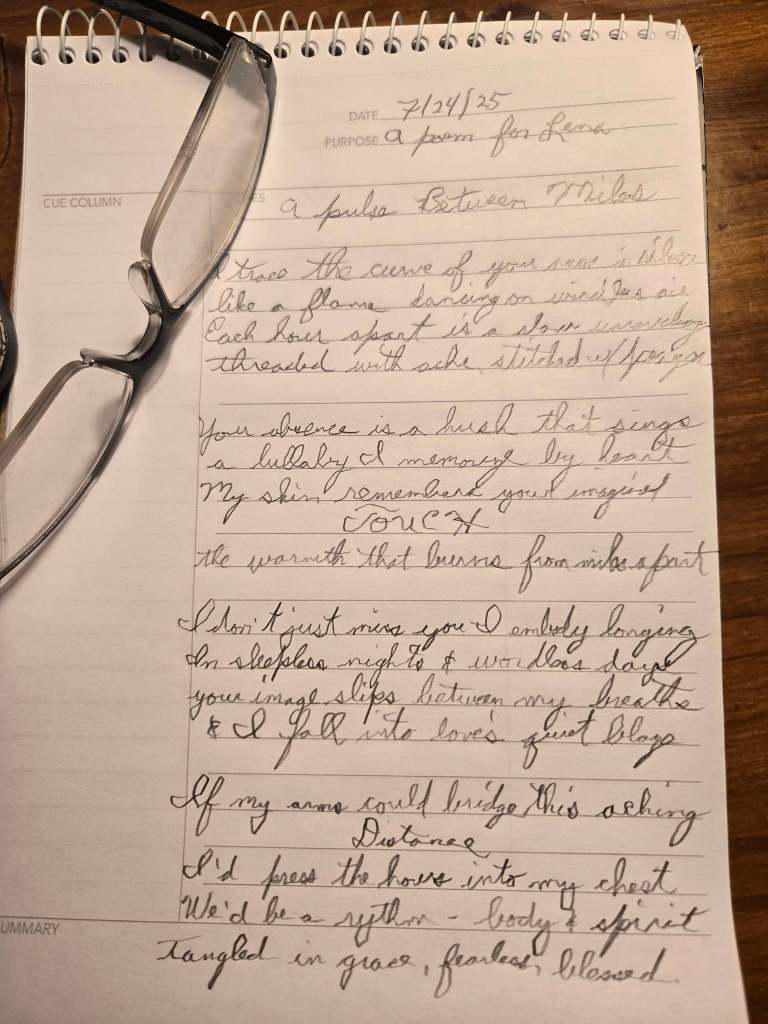 DATE 7/24/25
PURPOSE a poem for Lena
CUE COLUMN
ES a pulse Between Miles
I trace the curve of your name in silence
like a flame dancing on air
Each hour apart is a slow unraveling
threaded with ache, stitched w/
Your absence is a hush that sings
a lullaby I memorize by heart
My skin remembers your imagined
TOUCH
the warmth that burns from miles apart
I don't just miss you I embody longing
In sleepless nights & wordless days
your image slips between my breaths
& I fall into love's quiet blaze
If my arms could bridge this aching
Distance
I'd press the hours into my chest
We'd be a rythm - body & spirit
UMMARY
Tangled in grace, fearless, blessed.